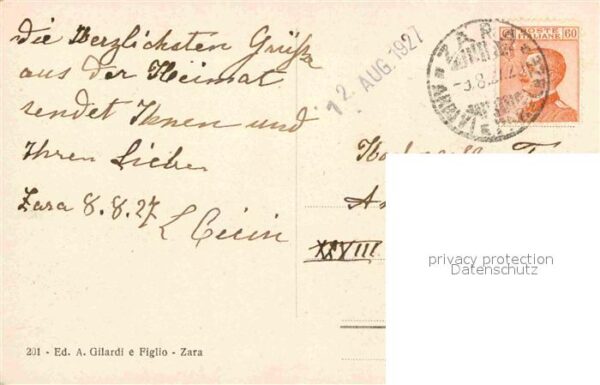 Die Herzlichsten Grüße
aus der Heimat
sendet Ihnen und
Ihren Lieben
Zara 8.8.27
12 AUG. 1927
ZARA
POSTE
ITALIANE 60
XXVIII
privacy protection
Datenschutz
201 - Ed. A. Gilardi e Figlio - Zara